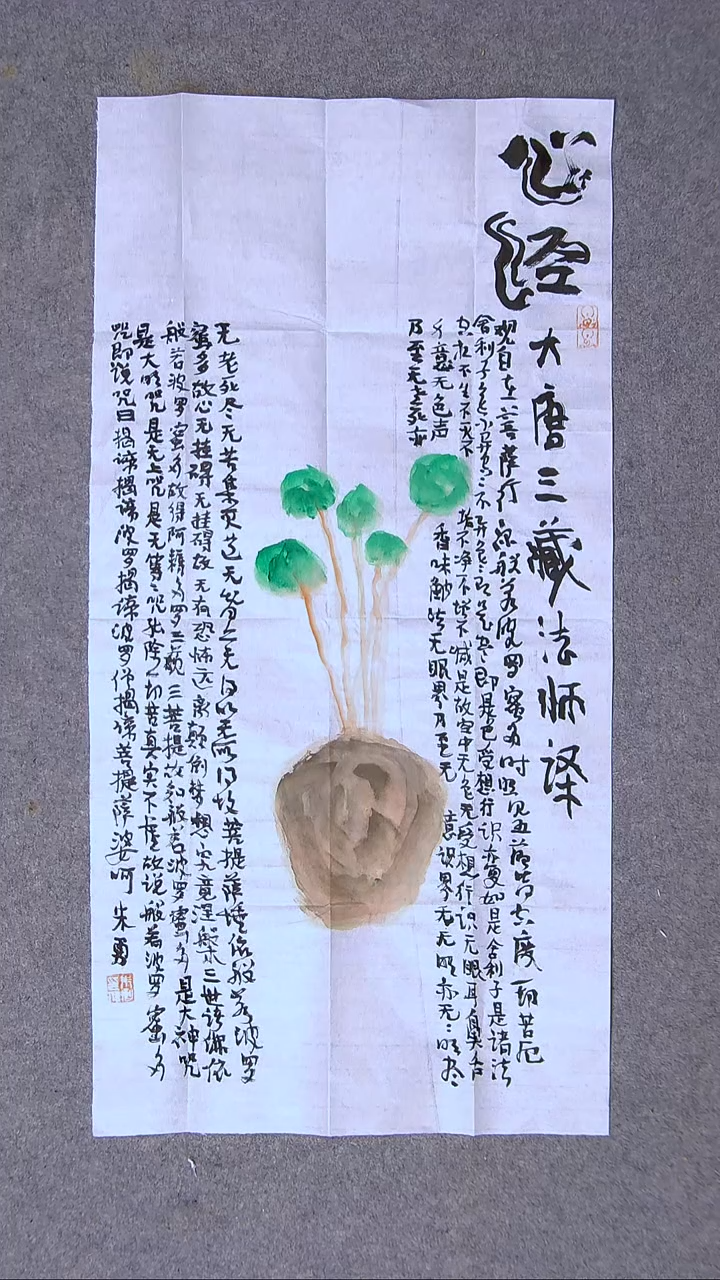 心经
大唐三藏法师译
观自在菩萨行深般若波罗蜜多时照见五蕴皆空度一切苦厄
舍利子色不异空空不异色色即是空空即是色受想行识亦复如是舍利子是诸法
空相不生不灭不垢不净不增不减是故空中无色无受想行识无眼耳鼻舌
身意无色声香味触法无眼界乃至无意识界无无明亦无无明尽
乃至无老死亦
无老死尽无苦集灭道无智亦无得以无所得故菩提萨埵依般若波罗
蜜多故心无挂碍无挂碍故无有恐怖远离颠倒梦想究竟涅槃三世诸佛依
般若波罗蜜多故得阿耨多罗三藐三菩提故知般若波罗蜜多是大神咒
是大明咒是无上咒是无等等咒能除一切苦真实不虚故说般若波罗蜜多
咒即说咒曰揭谛揭谛波罗揭谛波罗僧揭谛菩提萨婆呵 朱勇